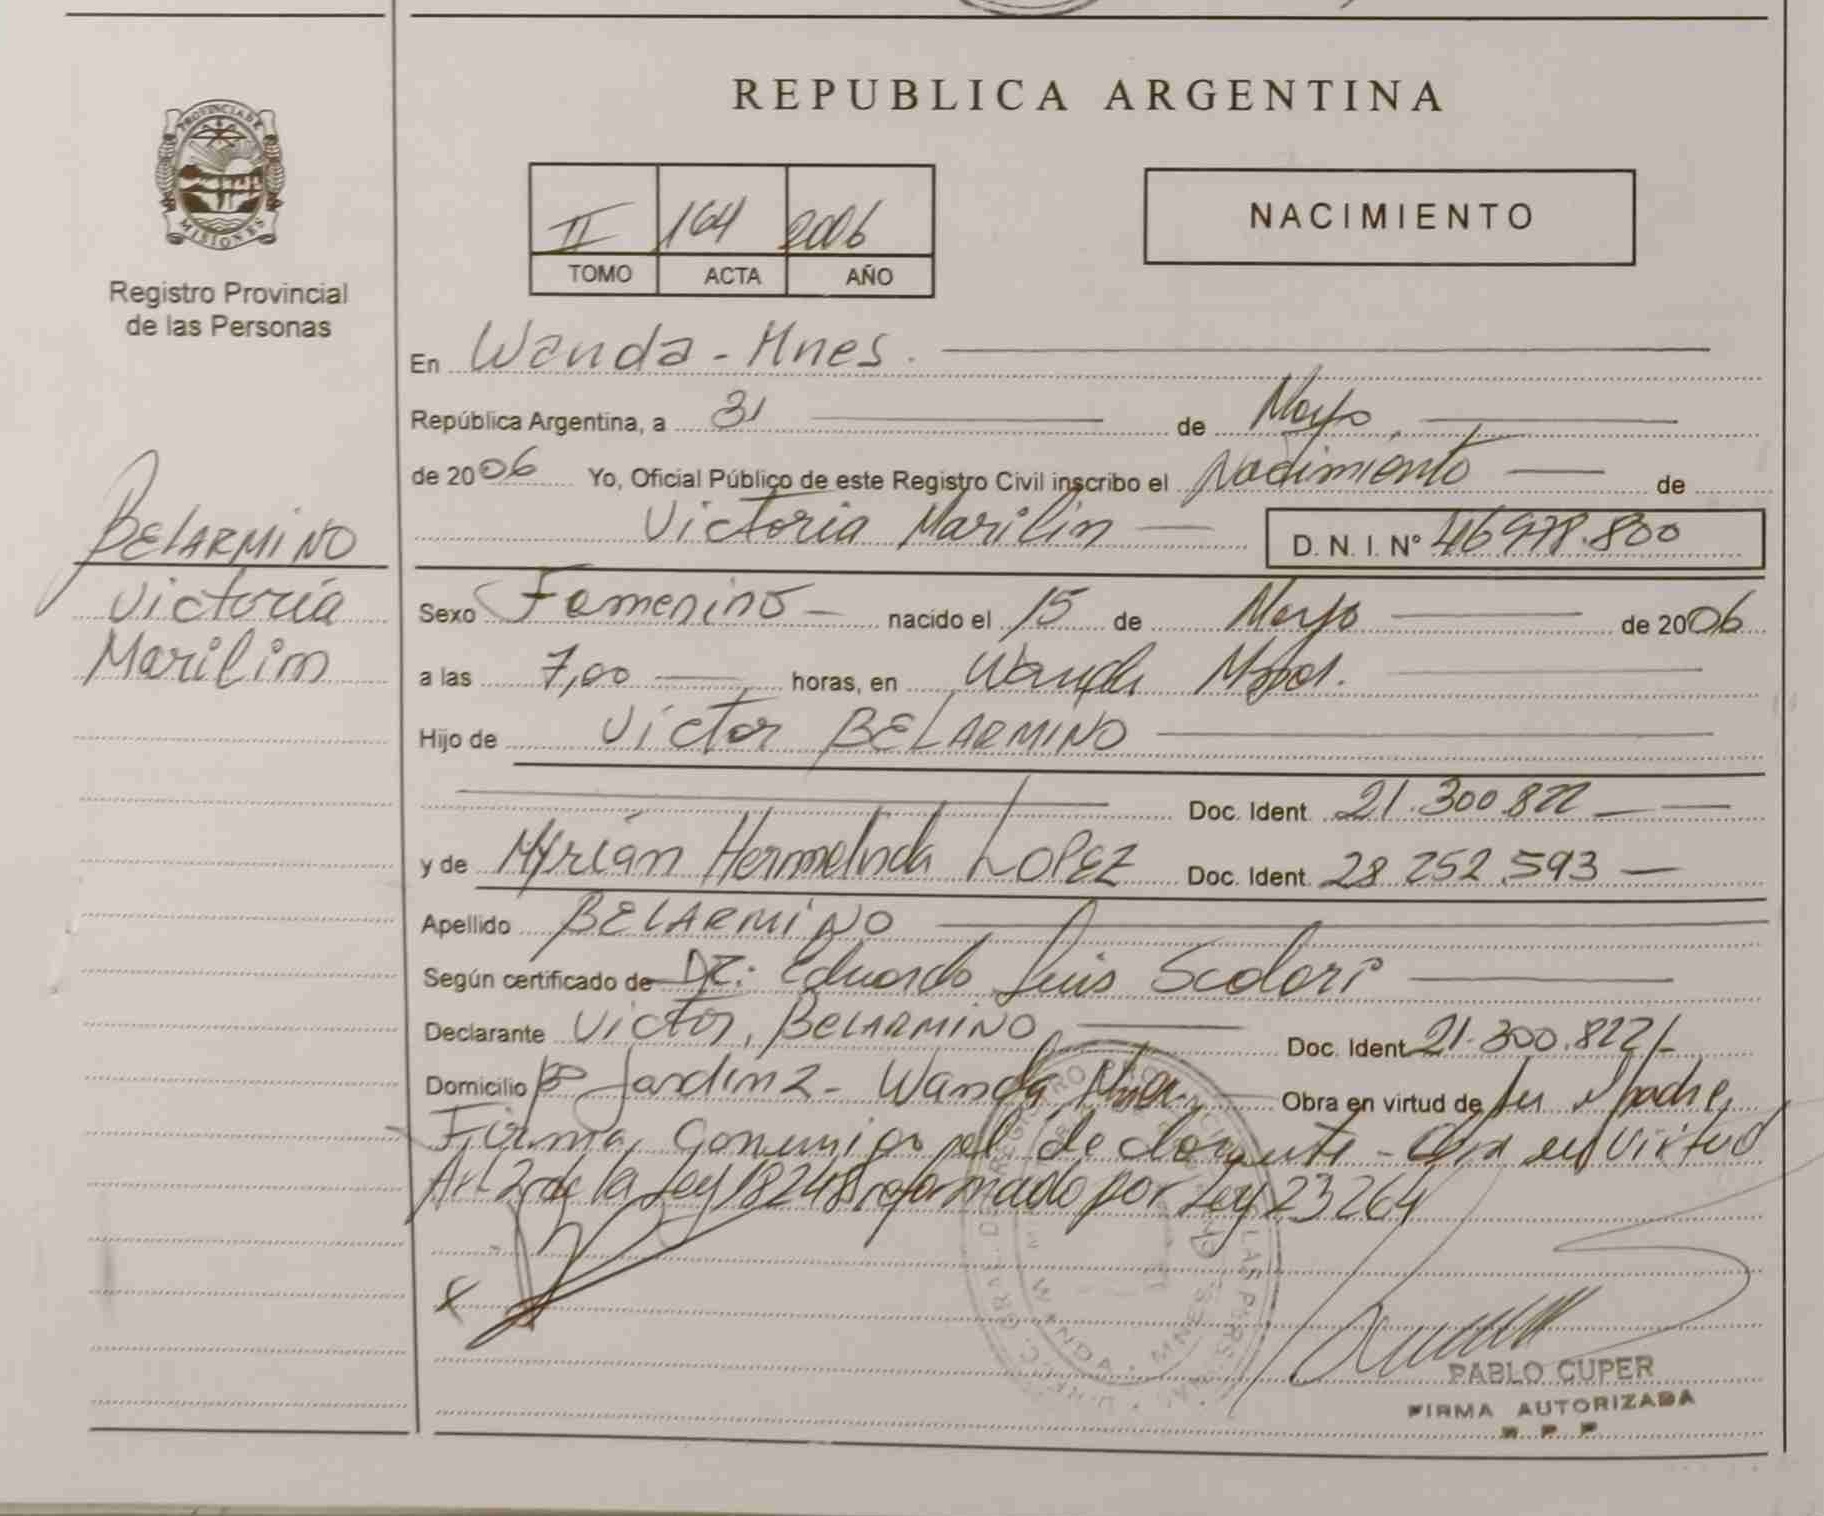 PROVINCIA DE
MISIONES
Registro Provincial
de las Personas
BELARMINO
Victoria
Marilin
REPUBLICA ARGENTINA
II 164 2006
TOMO ACTA AÑO
NACIMIENTO
En Wanda - Mnes.
República Argentina, a 31 de Mayo
de 2006 Yo, Oficial Público de este Registro Civil inscribo el Nacimiento de
Victoria Marilin D. N. I. Nº 46978.800
Sexo Femenino nacido el 15 de Mayo de 2006
a las 7,00 horas, en Wanda
Hijo de Victor BELARMINO
Doc. Ident. 21.300.822
y de Myrian Hermelinda LOPEZ Doc. Ident. 28 252.593
Apellido BELARMINO
Según certificado de Dr. Eduardo Luis Scolari
Declarante Victor, BELARMINO Doc. Ident 21.300.822
Domicilio Bº Jardin 2 - Wanda Obra en virtud de ser padre,
Firma, el declarante - Obra en virtud
Art 2 de la Ley 18248 reformado por Ley 23264
WANDA - MNES.
PABLO CUPER
FIRMA AUTORIZADA
R P P